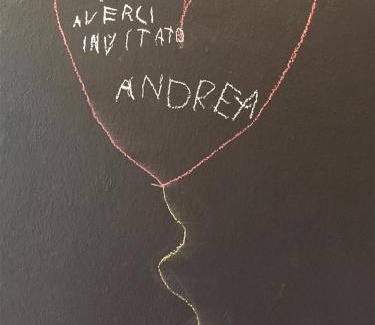 AVERCI
INVITATO
ANDREA